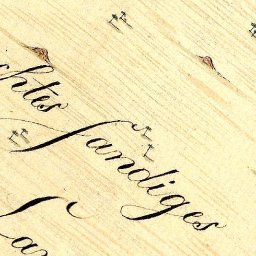 chtes Sandiges
San